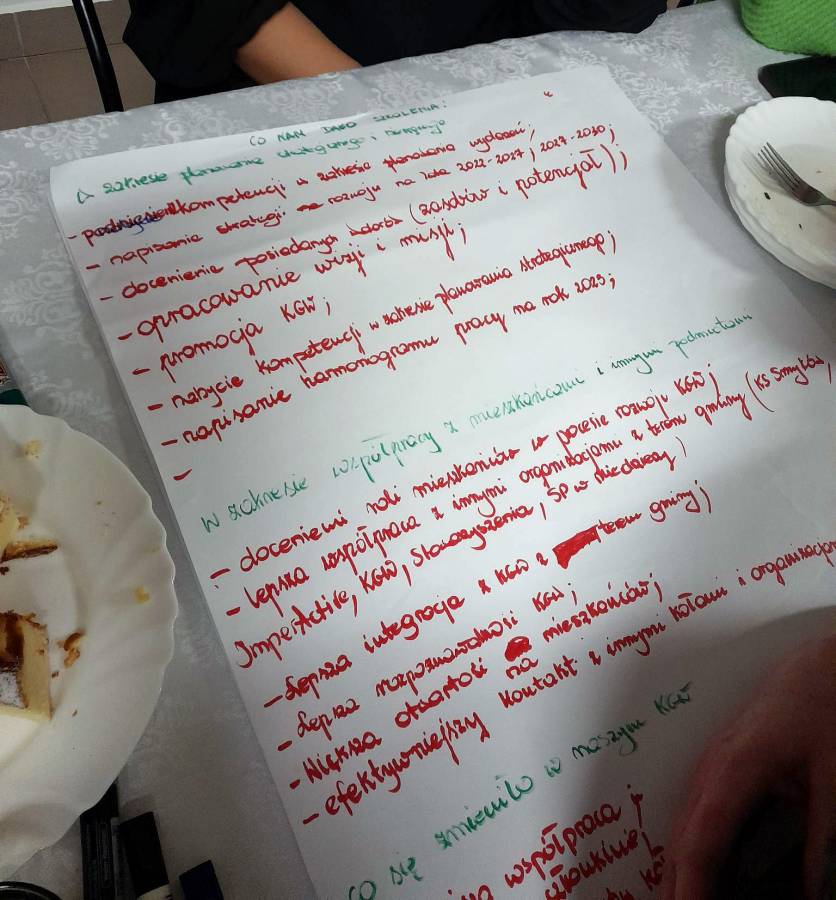 CO NAM DAŁO SZKOLENIE:
W zakresie planowania strategicznego i
- podniesienie kompetencji w zakresie planowania wydarzeń;
- napisanie strategii rozwoju na lata 2022-2027; 2027-2030;
- docenienie posiadanych (zasobów i potencjał);
- opracowanie wizji i misji;
- promocja KGW;
- nabycie kompetencji w zakresie planowania strategicznego;
- napisanie harmonogramu pracy na rok 2023;
-
W zakresie współpracy z mieszkańcami i innymi podmiotami
- doceniemi roli mieszkańców w pocesie rozwoju KGW;
- lepsza współpraca z innymi organizacjami z terenu gminy (KS Smyków,
ImperActive, KGW, Stowarzyszenia, SP w Miedzierzy)
- Lepsza integracja z KGW z terenu gminy;
- Lepsza rozpoznawalność KGW;
- Większa otwartość na mieszkańców;
- efektywniejszy kontakt z innymi kołami i organizacjami
CO się zmieniło w naszym KGW
współpraca;